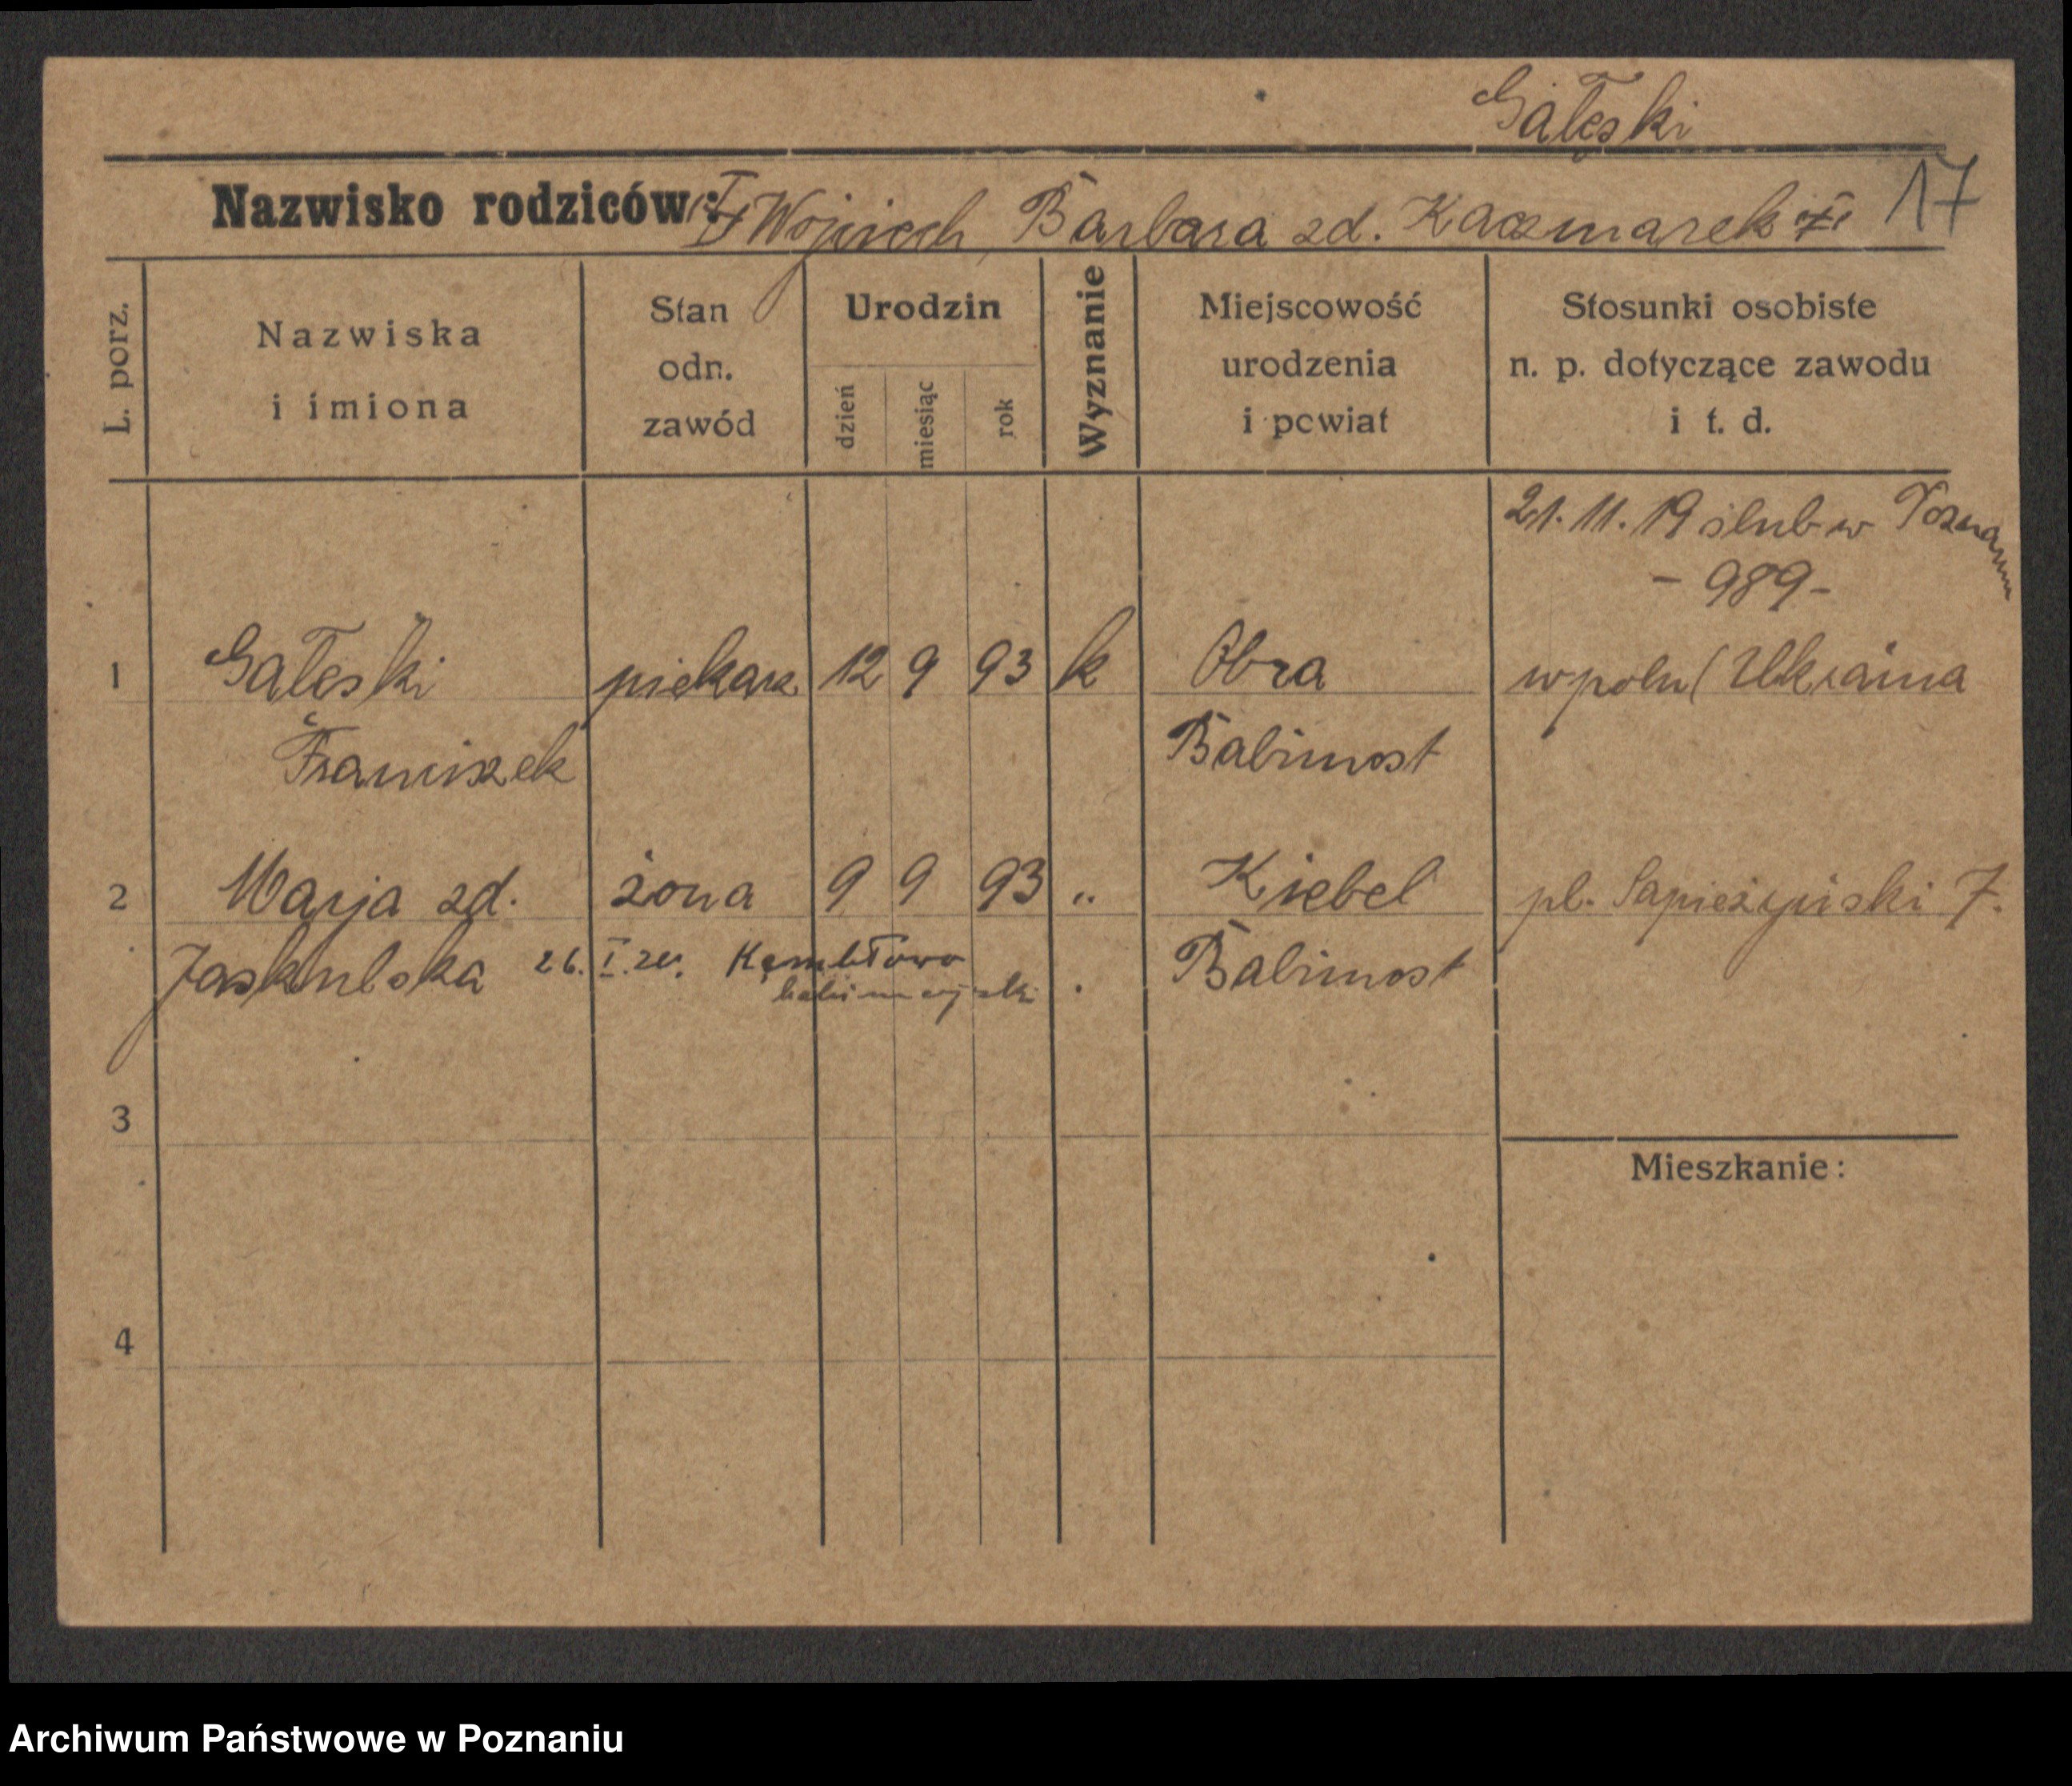 Gałęski
Nazwisko rodziców: Wojciech, Barbara zd. Kaczmarek
17
L. porz.
Nazwiska
i imiona
Stan
odn.
zawód
Urodzin
dzień
miesiąc
rok
Wyznanie
Miejscowość
urodzenia
i powiat
Stosunki osobiste
n. p. dotyczące zawodu
i t. d.
21. 11. 19 ślub w Poznaniu
- 989 -
1 Gałeski piekarz 12 9 93 k Obra w polu (Ukraina
Franciszek Babimost
2 Marja zd. żona 9 9 93 " Kiebel pl. Sapieżyński 7.
Jaskulska 26. I. 20. Kębłowo Babimost
babimojski
3
Mieszkanie:
4
Archiwum Państwowe w Poznaniu